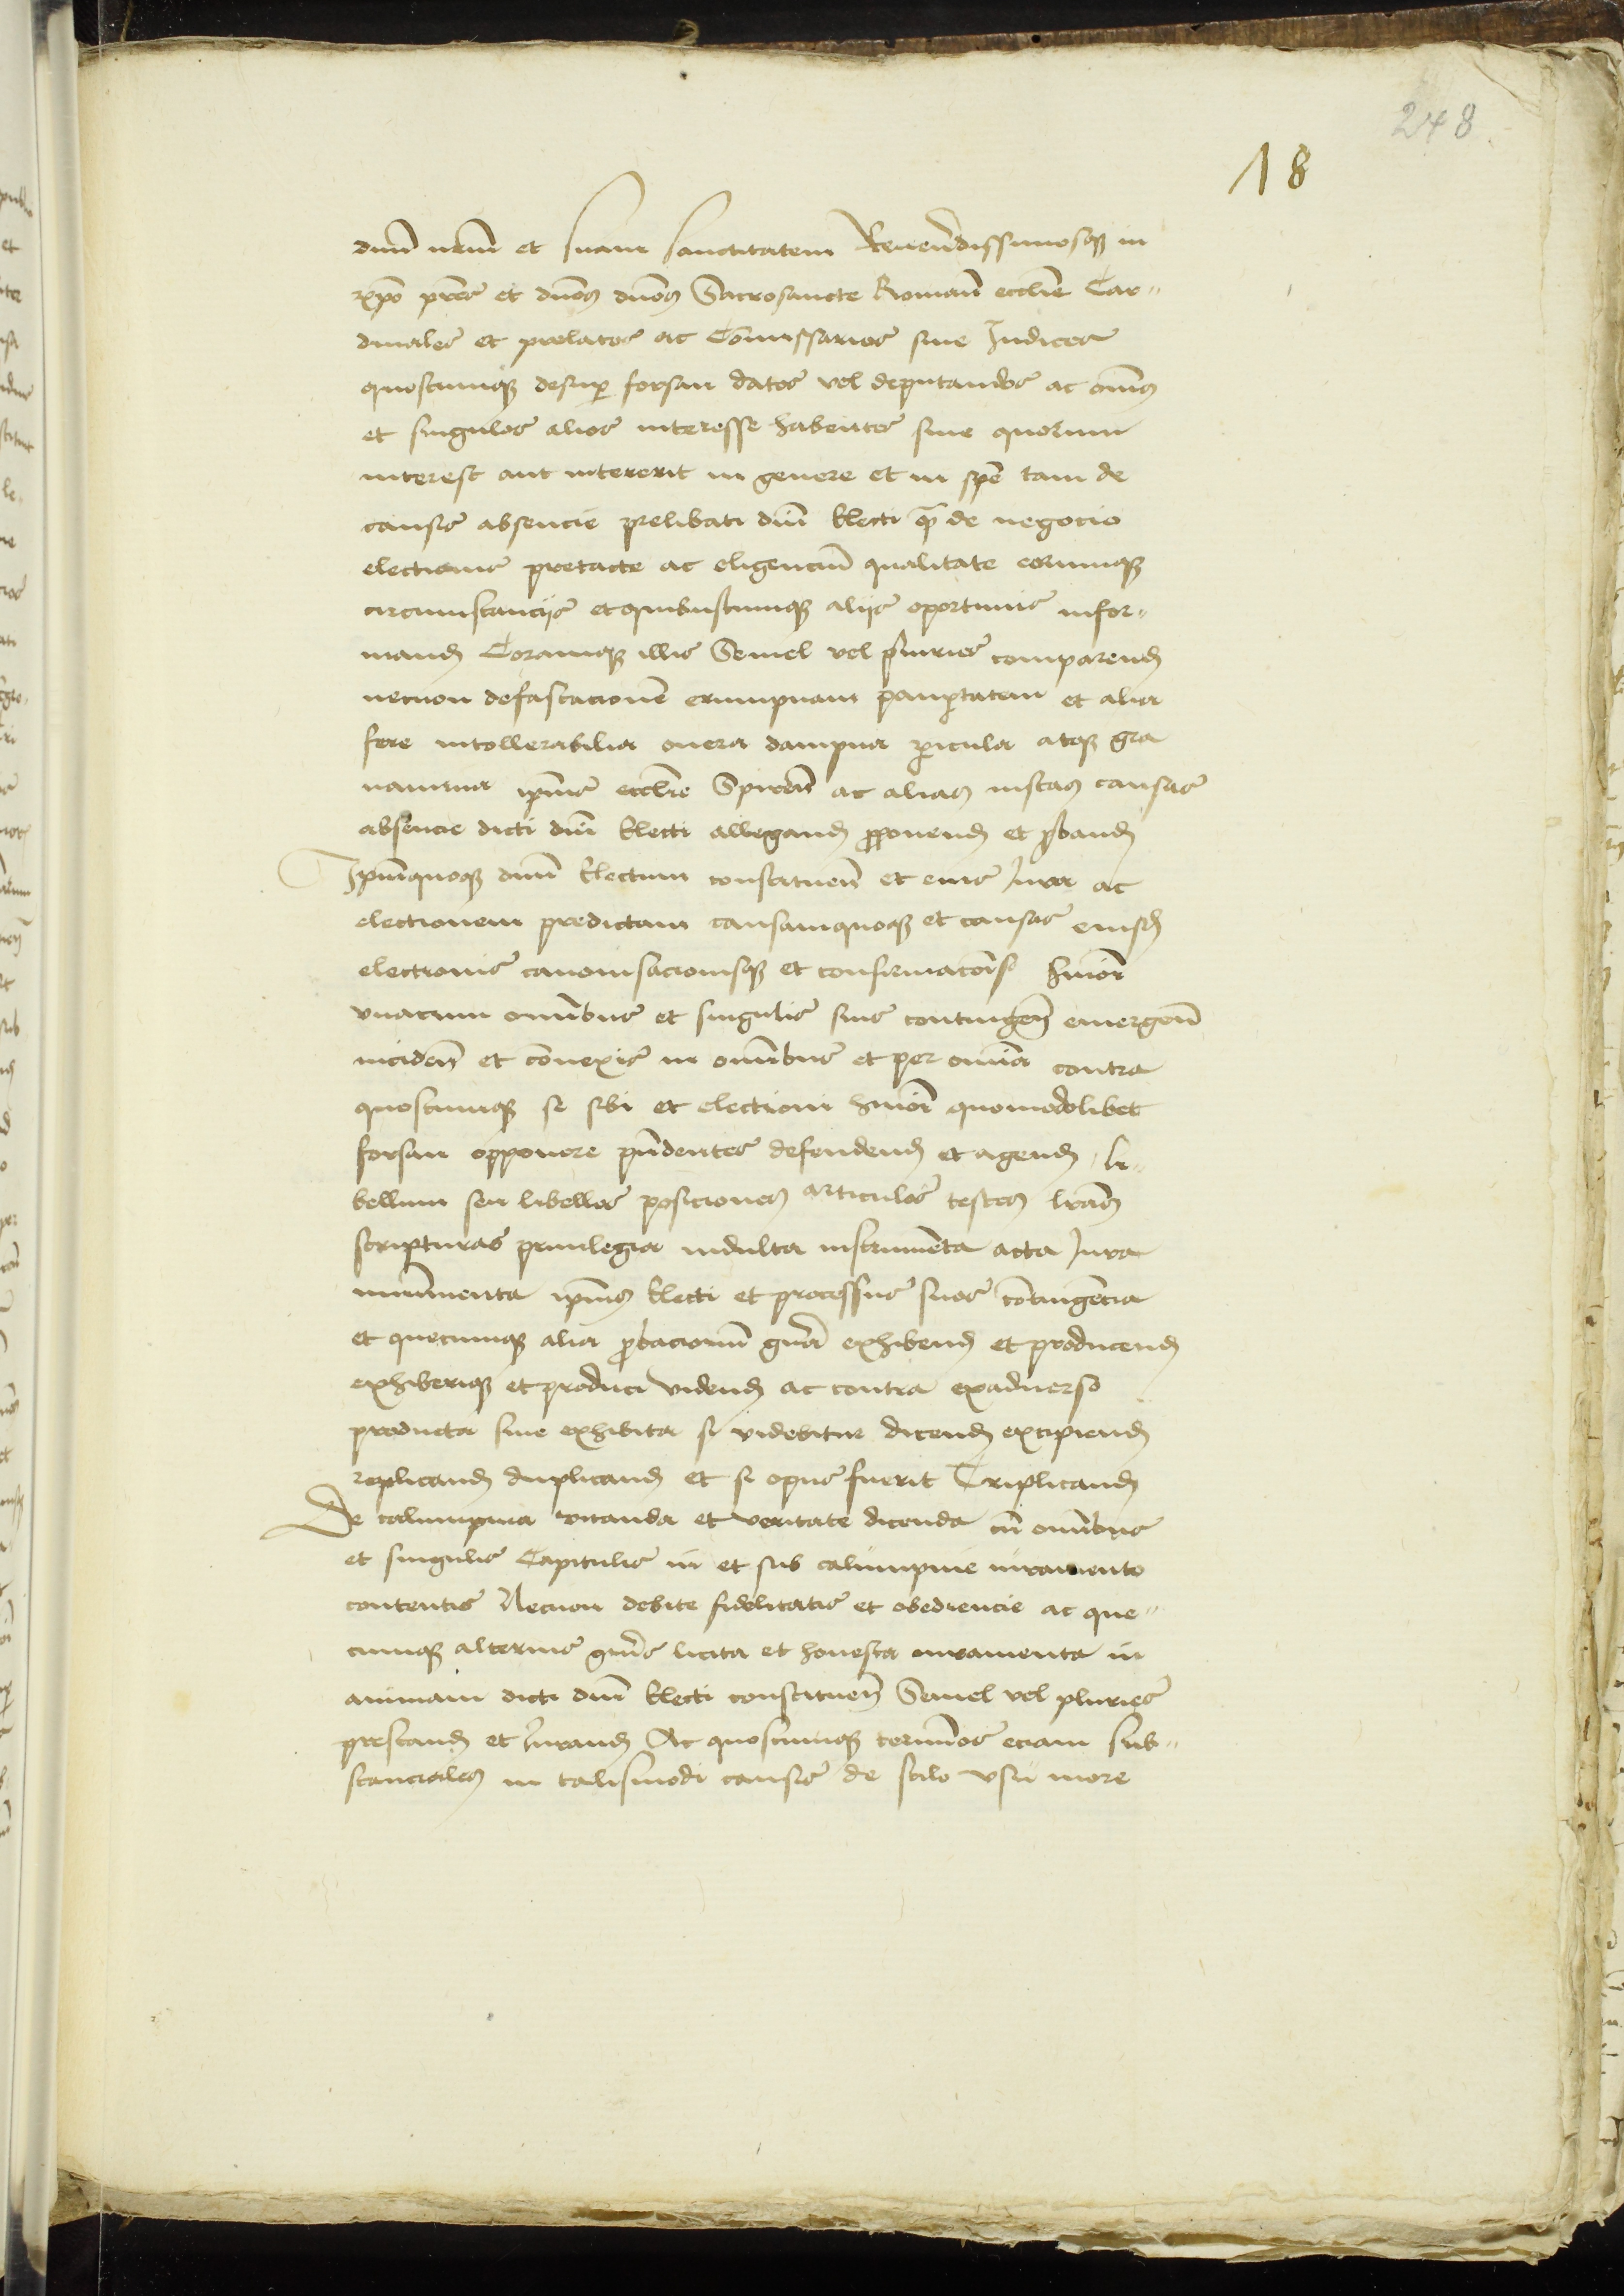 248
18
dnm̄ nrm̄ et suam sanctitatem Reuerēdissimosq̧ in
xp̄o pr̄es et dn̄os dn̄os Sacrosancte Roman̄ eccl̄ie Car-
dinales et prelatos ac Cōmissarios siue Iudices
quoscumq̧ desup̲ forsan datos vel deputandos ac om̄es
et singulos alios interesse habentes siue quorum
interest aut intererit in genere et in sp̄e tam de
causis absencie prelibati dn̄i Electi q̄ de negocio
electionis pretacte ac eligenciū qualitate eorumq̧
circumstancijs et quibuscumq̧ alijs oportunis infor-
mand̄ Coramq̧ illis Semel vel pluries comparend̄
necnon defastacionē erumpnam paup̲tatem et alia
fere intollerabilia onera dampna p̲icula atq̧ gra
uamina ip̄ius eccl̄ie Spiren̄ ac alias iustas causas
absencie dicti dn̄i Electi allegand̄ p̲ponend̄ et p̲band̄
Ip̄mquoq̧ dnm̄ Electum constituen̄ et eius Iura ac
electionem predictam causamquoq̧ et causas eiusd̄
electionis canonisacionisq̧ et confirmacōis hmōi
vnacum omībus et singulis suis contingen̄ emergen̄
inciden̄ et cōnexis in omībus et per omīa contra
quoscumq̧ se sibi et electioni hmōi quomodolibet
forsan opponere p̄tendentes defendend̄ et agend̄ li-
bellum seu libellos posiciones articulos testes lr̄as
scripturas priuilegia indulta instrumēta acta Iura
munimenta ip̄ius Electi et processus suos cōtingēcia
et quecumq̧ alia p̲bacionū gn̄a exhibend̄ et producend̄
exhiberiq̧ et produci videnđ ac contra exaduerso
producta siue exhibita si videbitur dicend̄ excipiend̄
replicand̄ duplicand̄ et si opus fuerit Triplicand̄
De calumpnia vitanda et veritate dicenda cū omībus
et singulis Capitulis in et sub calumpnie iuramento
contentis Necnon debite fidelitatis et obediencie ac que-
cumq̧ alterius gn̄is licita et honesta iuramenta in
animam dicti dn̄i Electi constituen̄ Semel vel pluries
prestand̄ et Iurand̄ Ac quoscumq̧ termīos eciam sub-
stanciales in talismodi causis de stilo vsu more